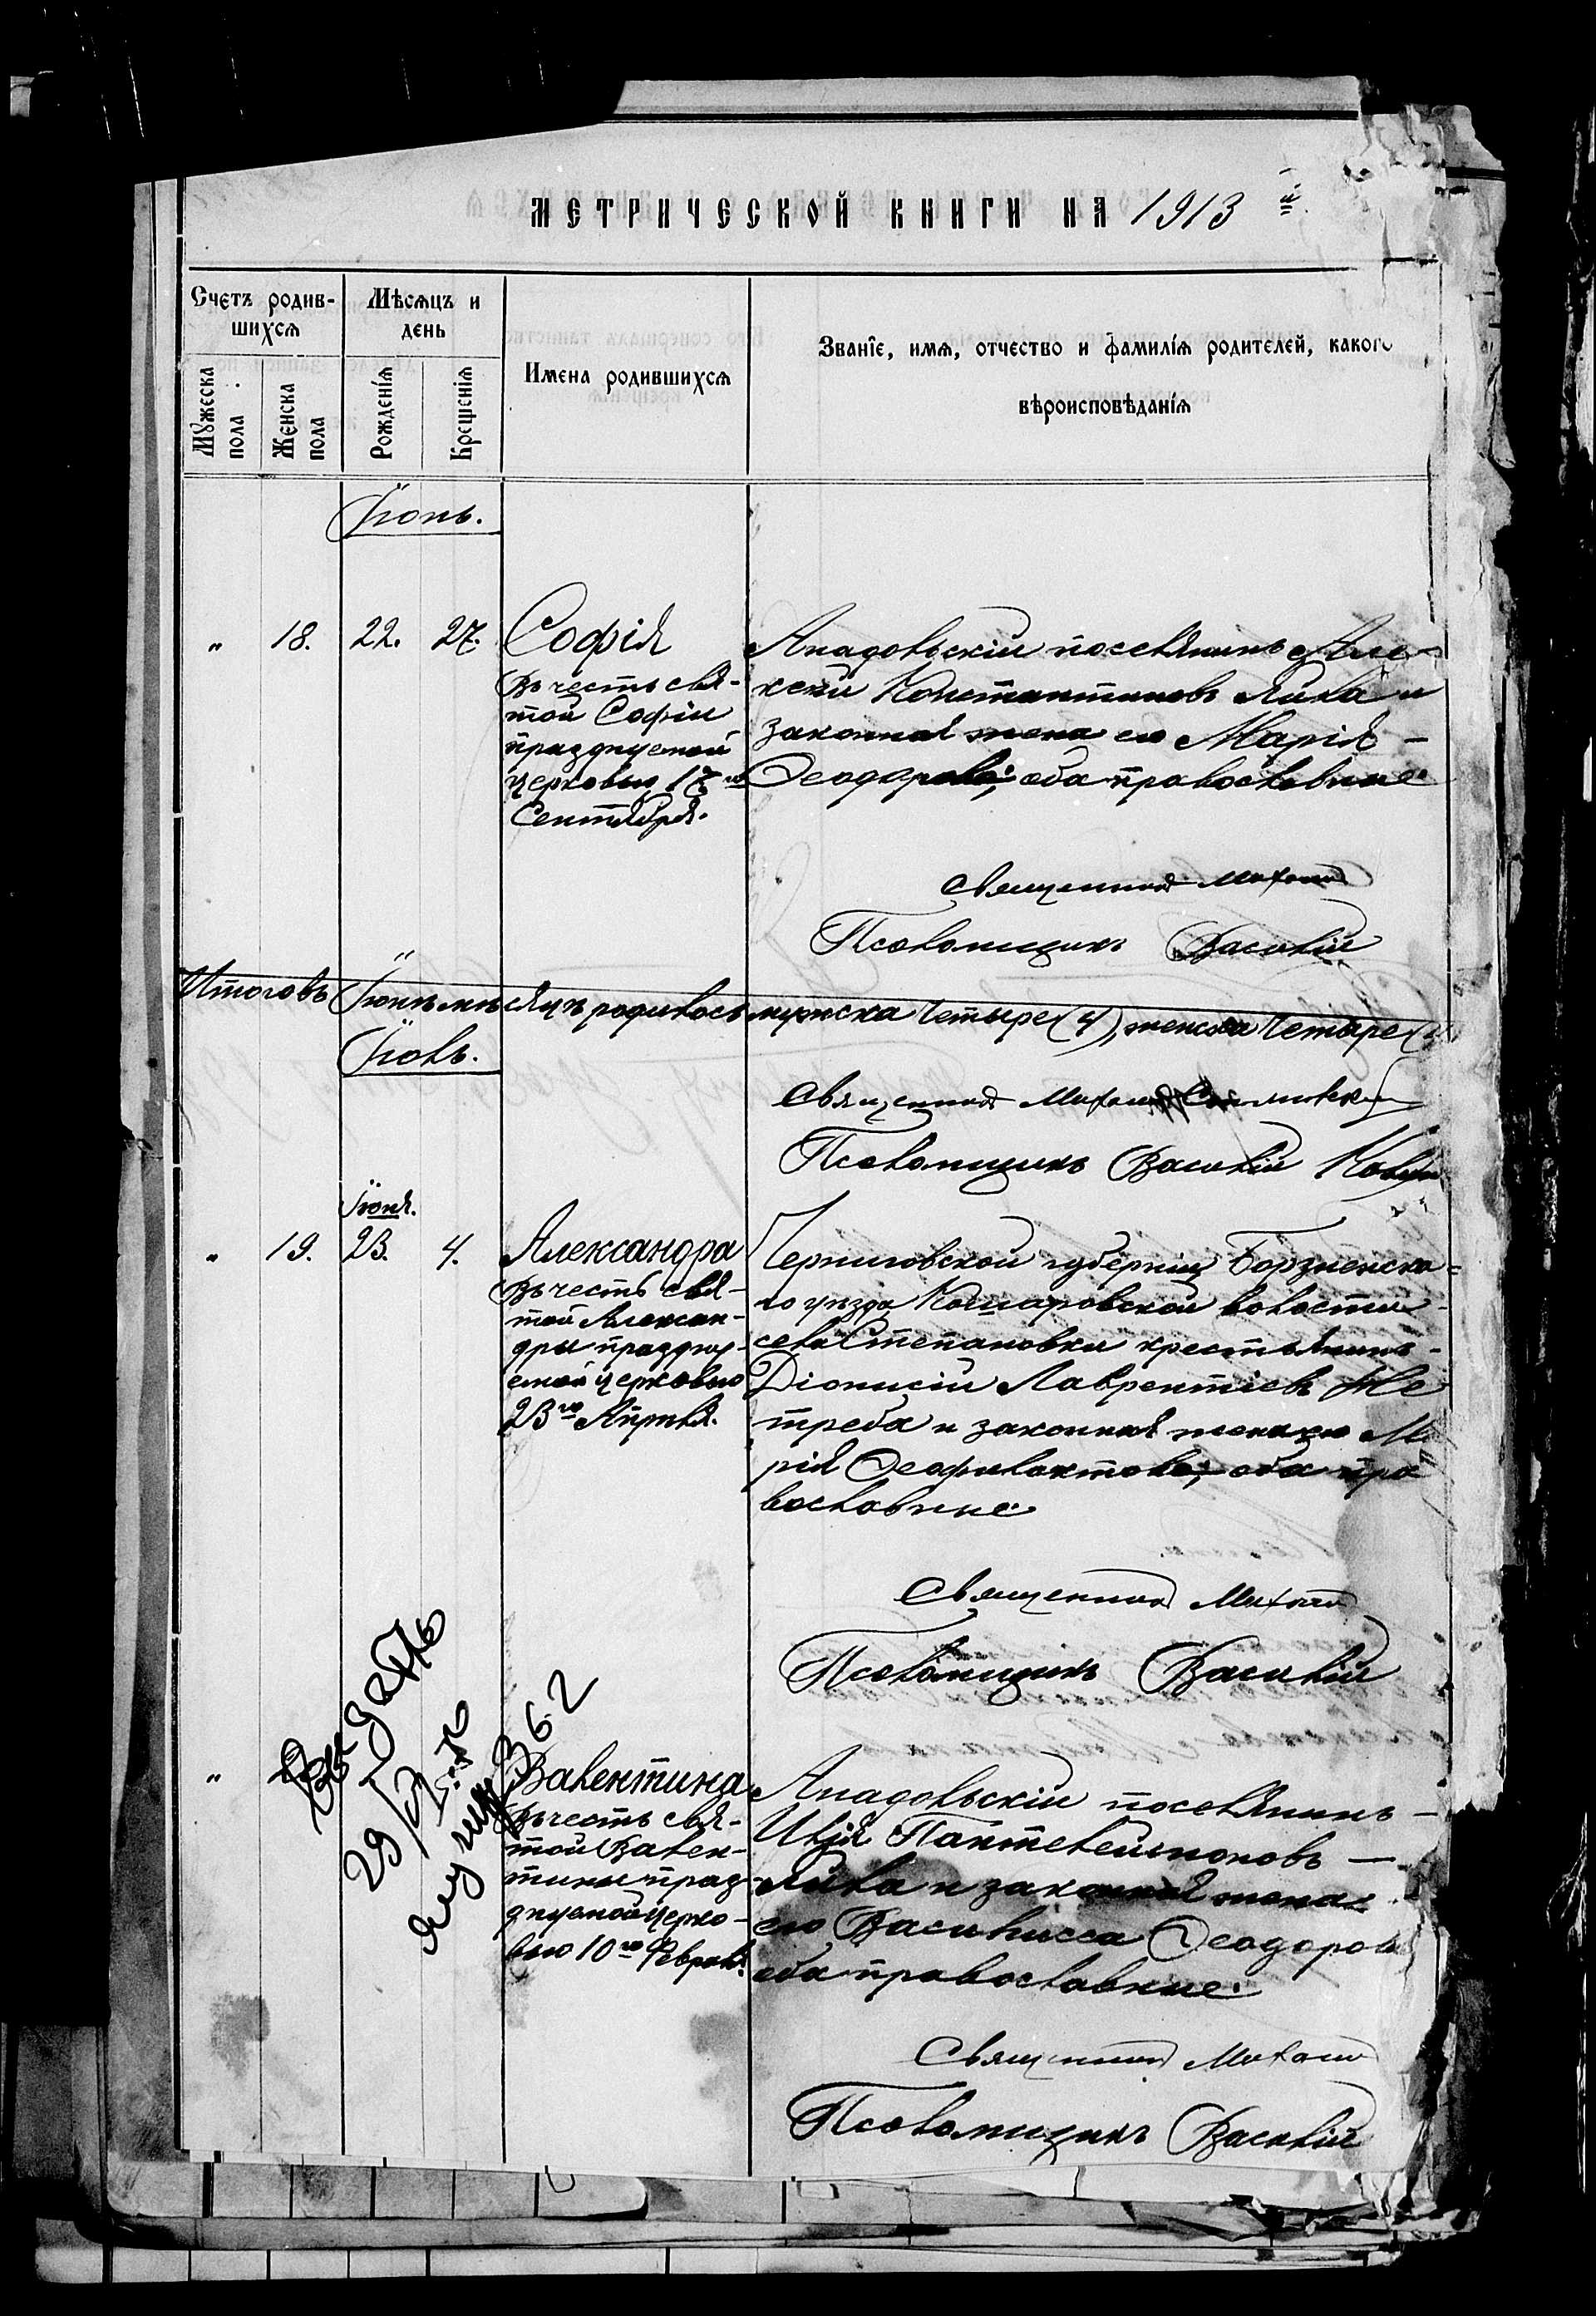 МЕТРИЧЕСКОЙ КНИГИ НА 1913
Счетъ родив-
шихся
Мѣсяцъ и
день
Имена родившихся
Званіе, имя, отчество и фамилія родителей, какого
вѣроисповѣданія
Мужеска
пола
Женска
пола
Рожденія
Крещенія
Іюнь.
" 18. 22. 27. Софія
Въ честь свя-
той Софіи
празднуемой
церковью 17го
Сентября.
Анадольскій поселянинъ Але-
ксѣй Константиновъ и
законная жена его Марія –
Ѳеодорова; оба православные.
Священникъ Михаилъ
Псаломщикъ Василій
Итого въ Іюнѣ мѣсяцѣ родилось мужска четыре (4), женска четыре (4
Іюль.
Священникъ Михаилъ
Псаломщикъ Василій
Іюня.
" 19. 23. 4. Александра
Въ честь свя-
той Алексан-
дры праздну-
емой церковью
23го Апрѣля.
Черниговской губерніи Борзненска-
го уѣзда, Комаровской волости
села Степановки крестьянинъ –
Діонисій Лаврентіевъ Не
треба и законная жена его Ма
рія Ѳеофилактова; оба пра
вославные.
Священникъ Михаилъ
Псаломщикъ Василій
29/
362
" Валентина
Въ честь свя-
той Вален-
тины праз-
днуемой церко-
вью 10го Февраля.
Анадольскій поселянинъ –
Илія Пантелеймоновъ –
и законная жена
его Василисса Ѳеодоров
оба православные.
Священникъ Михаилъ
Псаломщикъ Василій